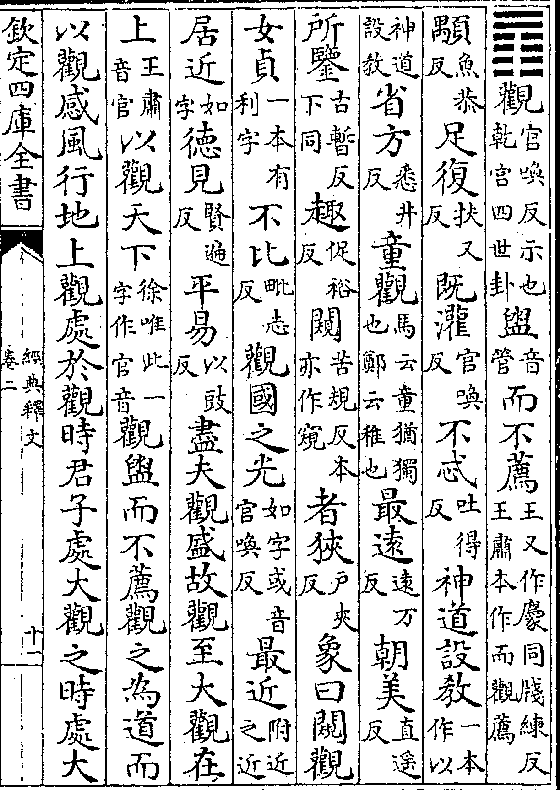 ䷓觀官喚反示也乾宮四世卦盥音管而不薦王又作䴡同牋練反王肅本作而觀薦
顒魚恭反足復扶又反既灌官喚反不忒吐得反神道設教一本作以
神道設教省方悉井反童觀馬云童猶獨也鄭云稚也最遠遠万反朝美直遥反
所鑒古暫反下同趣促裕反闚苦規反本亦作窺者狹户夾反象曰闚觀
女貞一本有利字不比毗志反觀國之光如字或音官喚反最近附近之近
居近如字德見賢遍反平易以豉反盡夫觀盛故觀至大觀在
上王肅音官以觀天下徐唯此一字作官音觀盥而不薦觀之為道而
以觀感風行地上觀處於觀時君子處大觀之時處大
欽定四庫全書
經典釋文
卷二
十一